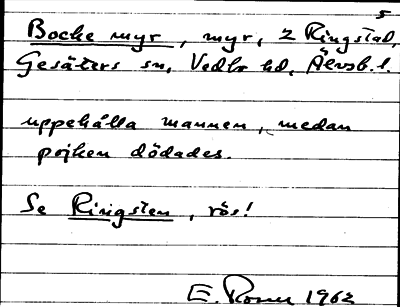 5
Bocke myr, myr, 2 Ringstad,
Gesäters sn, Vedbo hd, Älvsb. l.
uppehålla mannen, medan
pojken dödades.
Se Ringsten, rös!
E. 1962